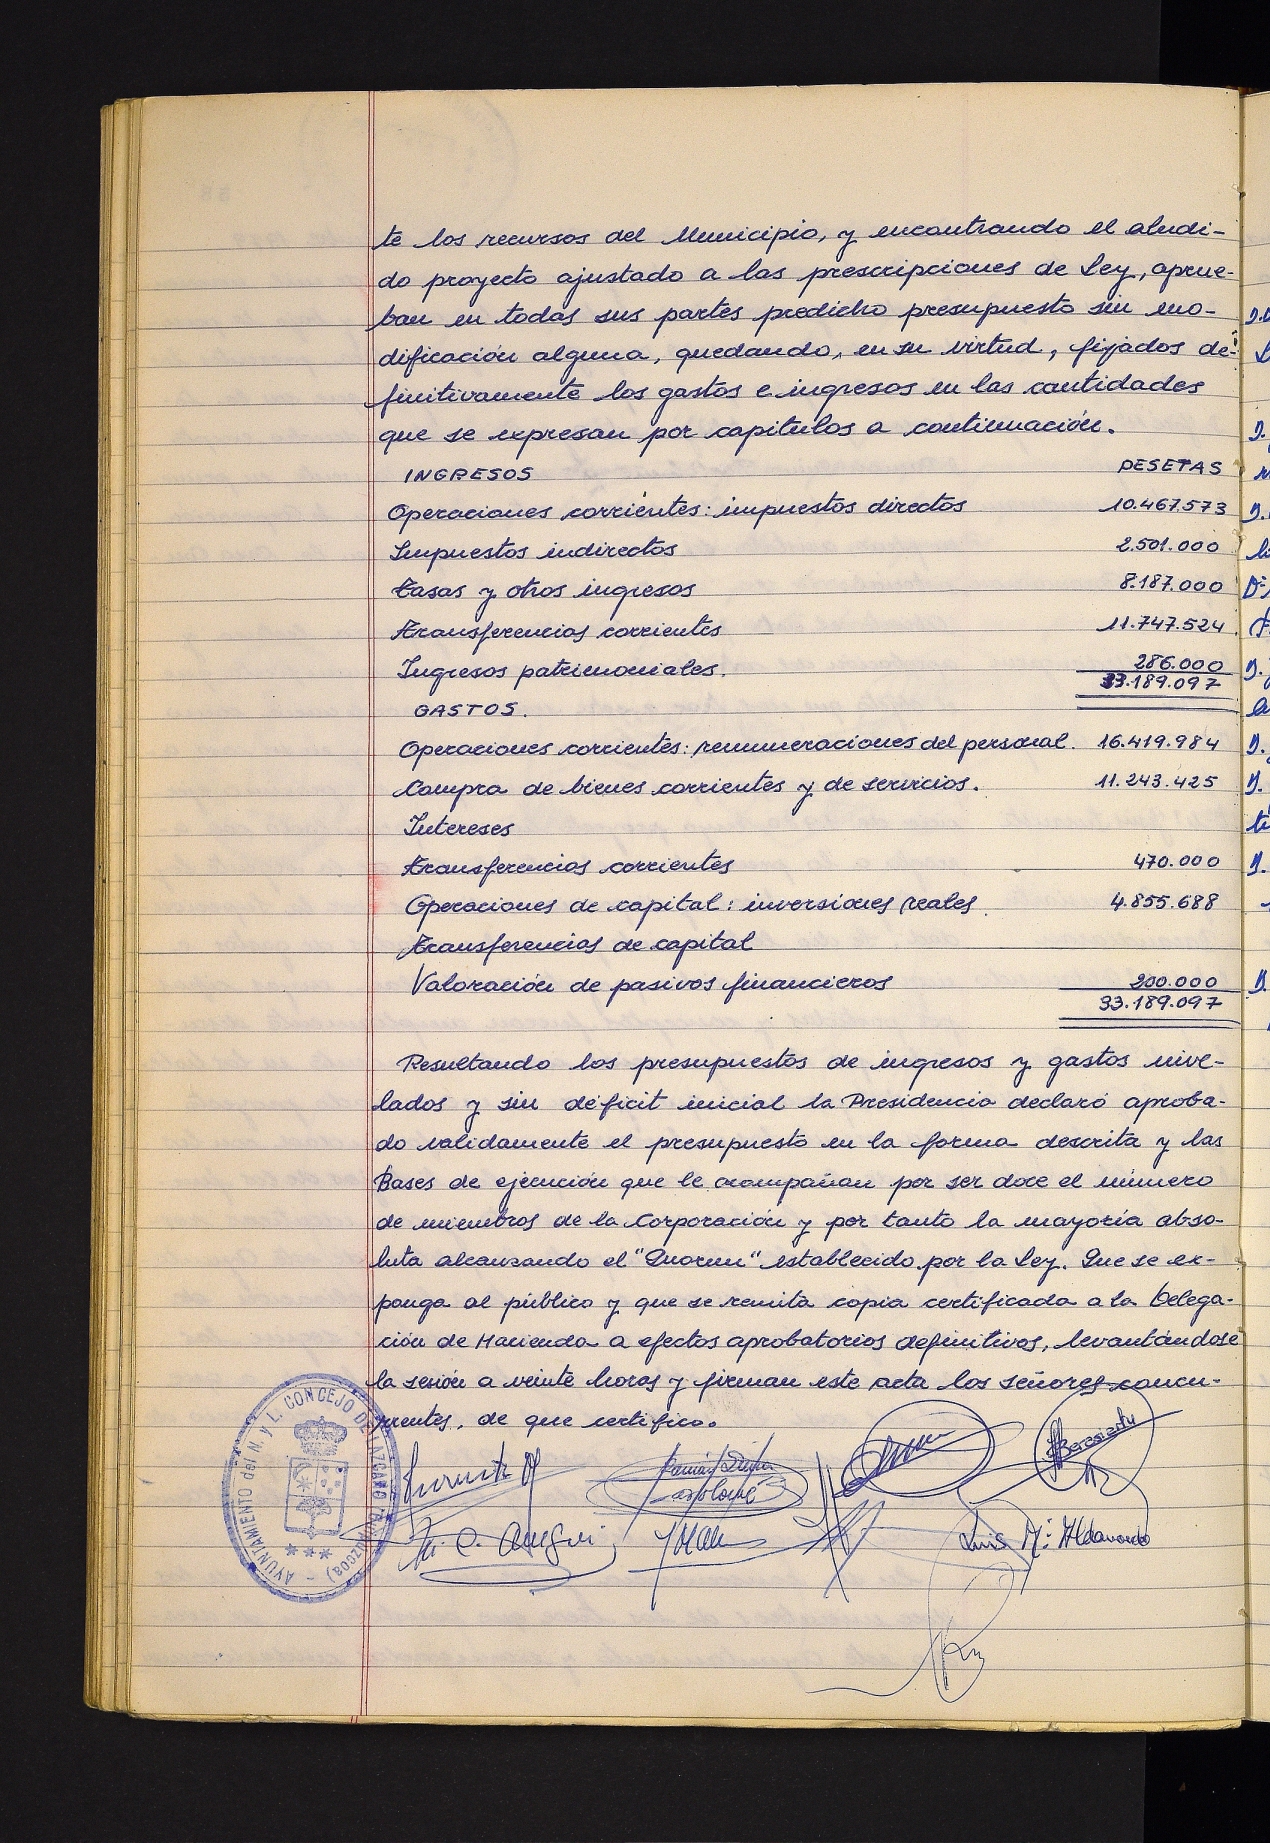 te los recursos del Municipio, y encontrando el aludi-
do proyecto ajustado a las prescripciones de Ley, aprue-
ban en todas sus partes predicho presupuesto sin mo-
dificación alguna, quedando, en su virtud, fijados de-
finitivamente los gastos e ingresos en las cantidades
que se expresan por capítulos a continuación.
INGRESOS PESETAS
Operaciones corriéntes: impuestos directos 10.467.573
Impuestos indirectos 2.501.000
Tasas y otros ingresos 8.187.000
Transferencias corrientes 11.747.524
Ingresos patrimoniales. 286.000
33.189.097
GASTOS.
Operaciones corrientes: remuneraciones del personal. 16.419.984
Compra de bienes corrientes y de servicios. 11.243.425
Intereses
Transferencias corrientes 470.000
Operaciones de capital: inversiones reales. 4.855.688
Transferencias de capital
Valoración de pasivos financieros 200.000
33.189.097
Resultando los presupuestos de ingresos y gastos nive-
lados y sin déficit inicial la Presidencia declaró aproba-
do validamente el presupuesto en la forma descrita y las
Bases de ejecución que le acompañan por ser doce el número
de miembros de la Corporación y por tanto la mayoría abso-
luta alcanzando el "Quorum" establecido por la Ley. Que se ex-
ponga al público y que se remita copia certificada a la Delega-
ción de Hacienda a efectos aprobatorios definitivos, levantándose
la sesión a veinte horas y firman este acta los señores concu-
rrentes, de que certifico.
AYUNTAMIENTO del N. y L. CONCEJO DE LAZCANO (GUIPUZCOA)
Luis Mª Aldanondo